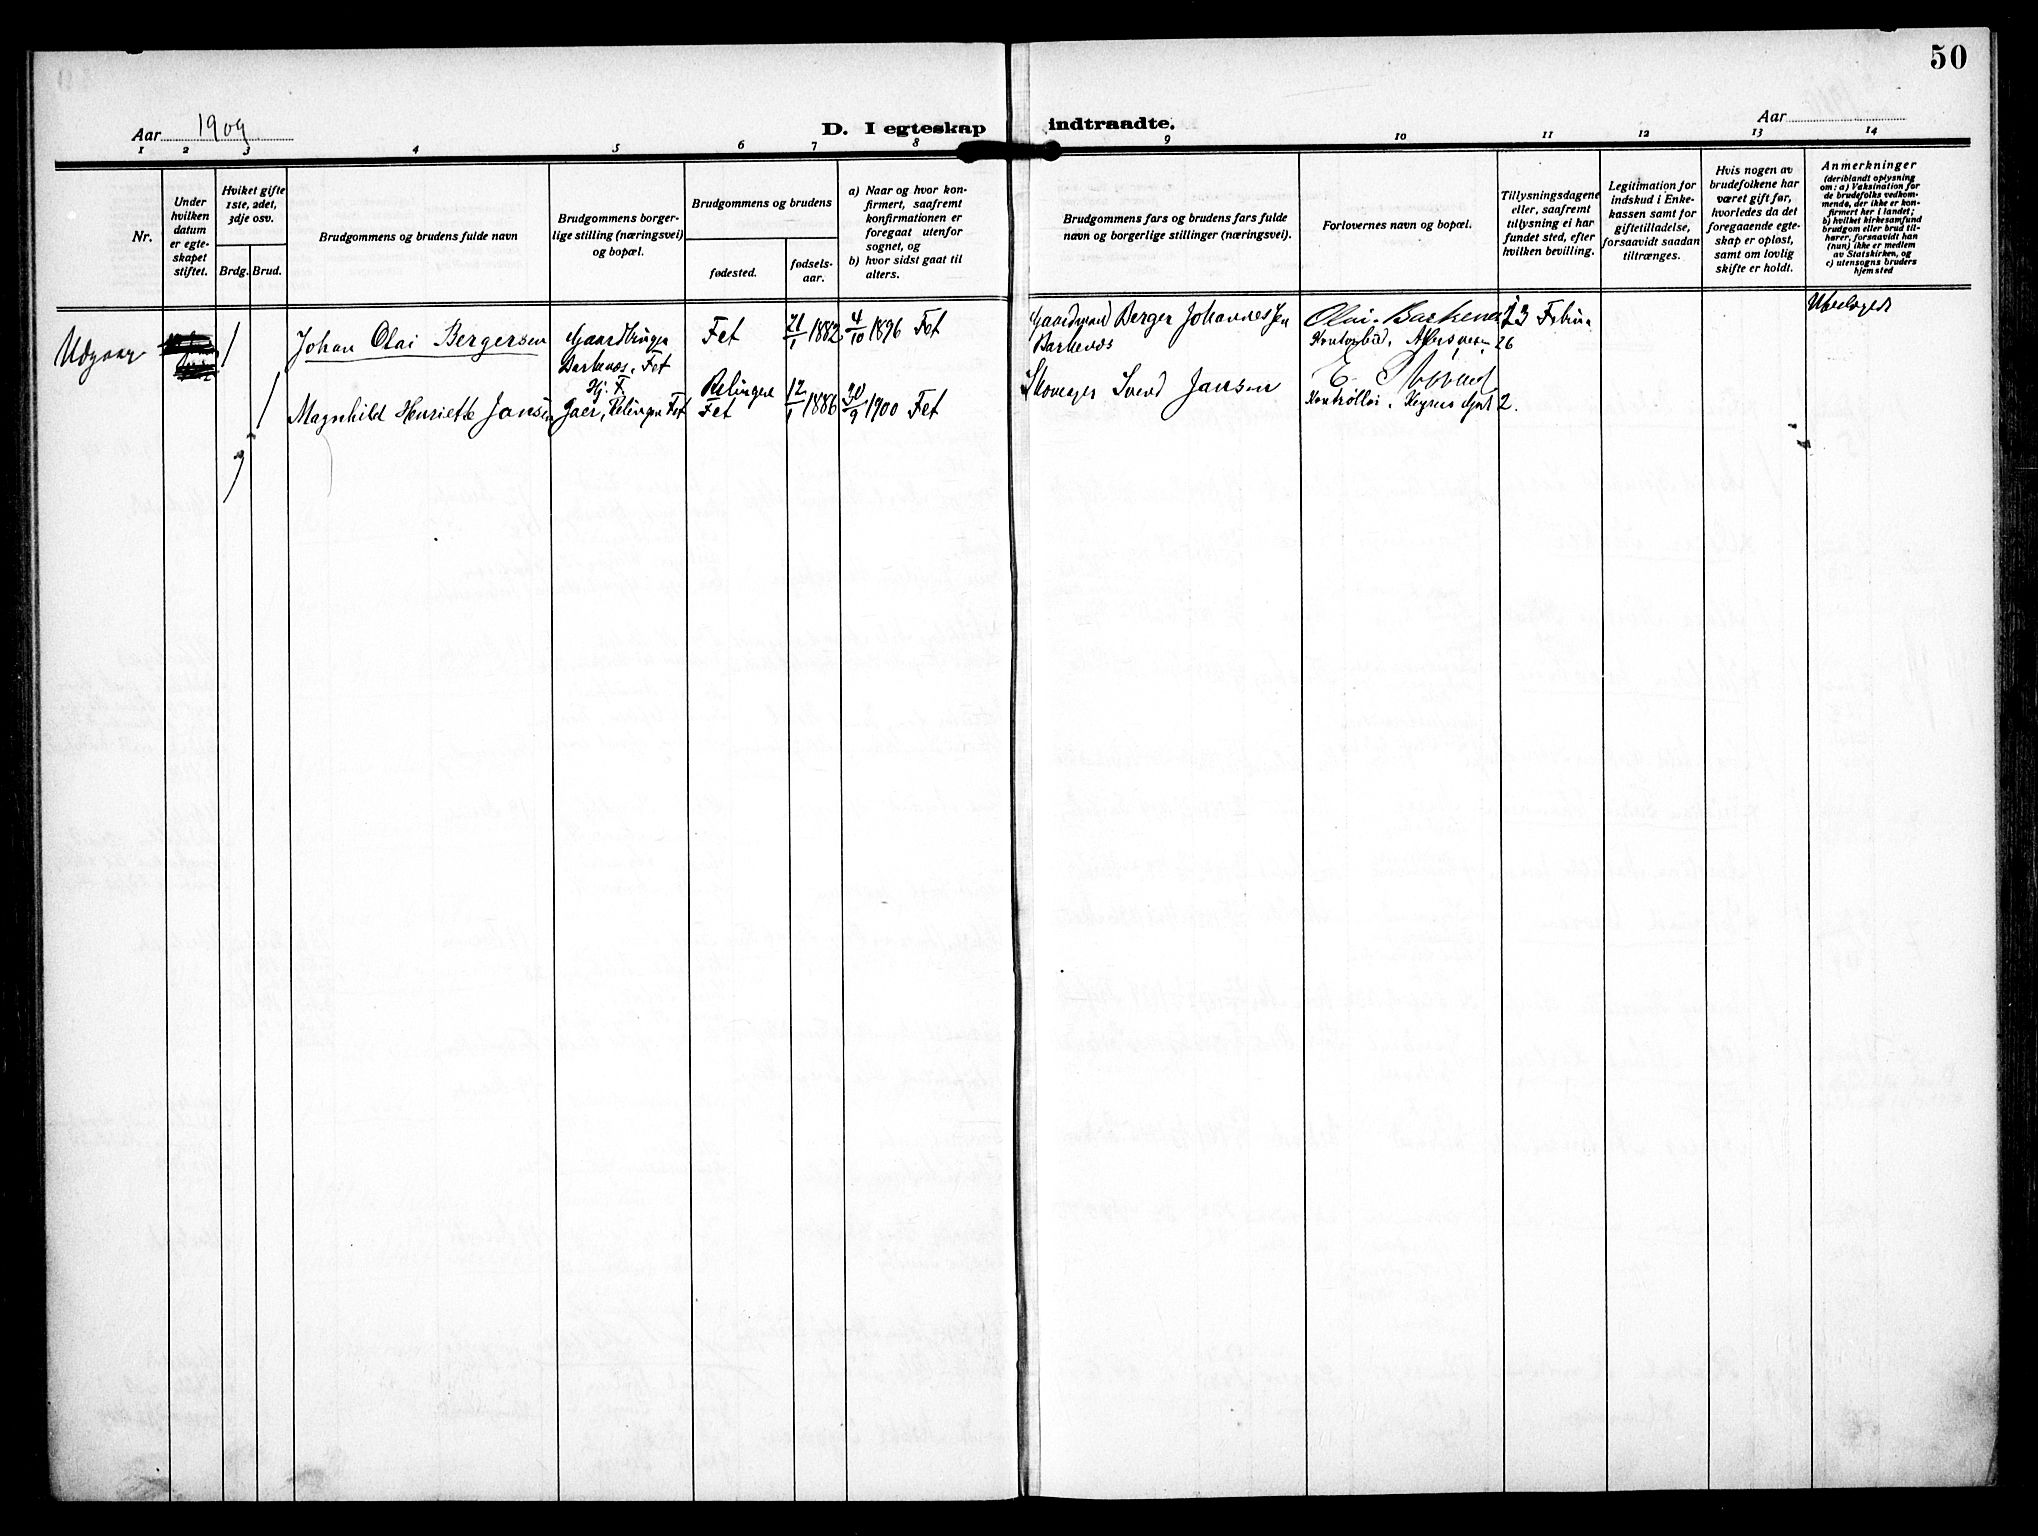 50
Aar 1909
D. I egteskap indtraadte.
Aar
1 2 3 4 5 6 7 8 9 10 11 12 13 14
Nr.
Under
hvilken
datum
er egte-
skapet
stiftet.
Hviket gifte
1ste, 2det,
3dje osv.
Brdg. Brud.
Brudgommens og brudens fulde navn
Brudgommens borger-
lige stilling (næringsvei)
og bopæl.
Brudgommens og brudens
fødested.
fødsels-
aar.
a) Naar og hvor kon-
firmert, saafremt
konfirmationen er
foregaat utenfor
sognet, og
b) hvor sidst gaat til
alters.
Brudgommens fars og brudens fars fulde
navn og borgerlige stillinger (næringsvei).
Forlovernes navn og bopæl.
Tillysningsdagene
eller, saafremt
tillysning ei har
fundet sted, efter
hvilken bevilling.
Legitimation for
indskud i Enke-
kassen samt for
giftetilladelse,
forsaavidt saadan
tiltrænges.
Hvis nogen av
brudefolkene har
været gift før,
hvorledes da det
foregaaende egte-
skap er opløst,
samt om lovlig
skifte er holdt.
Anmerkninger
(deriblandt oplysning
om: a) Vaksination for
de brudefolks vedkom-
mende, der ikke er kon-
firmert her i landet;
b) hvilket kirkesamfund
brudgom eller brud til-
hører, forsaavidt han
(hun) ikke er medlem
av Statskirken, og
c) utensogns bruders
hjemsted
Udgaar
1
Johan Olai Bergersen
Gaardbruger
Barkenæs, Fet
Fet
21/1 1882
4/10 1896 Fet
Gaardmand Berger Johannessen
Barkenæs
Olai Barkenæs
23 Februar
26
1
Magnhild Henriette Jansen
Hj. F.
Gaer, Relingen Fet
Relingen
Fet
12/1 1886
30/9 1900 Fet
Skoveier Svend Jansen
2.